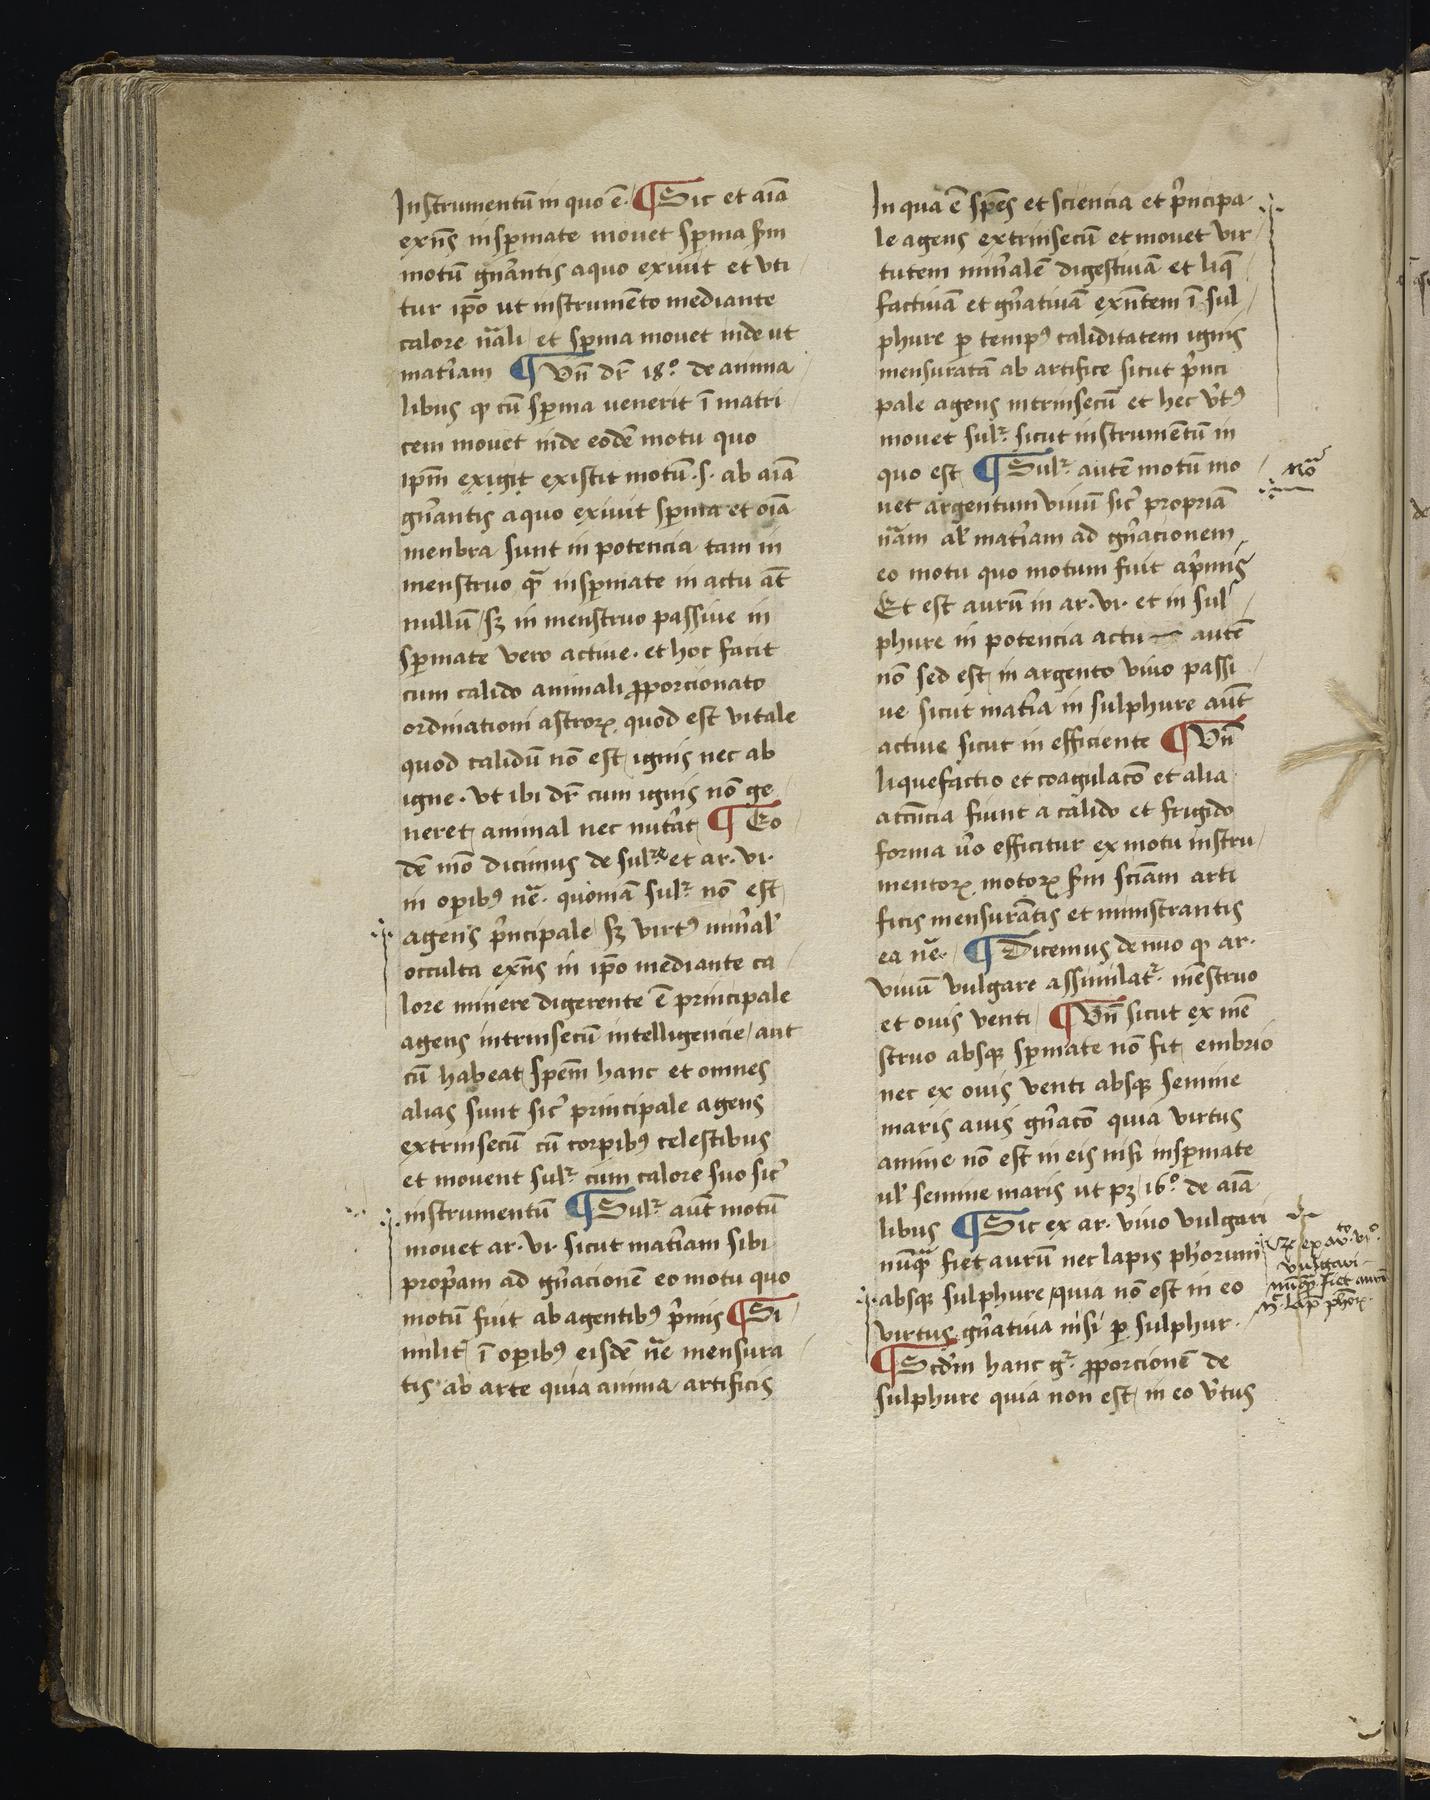 Instrumentū in quo ē· ¶Sic et aīa
exn̄s insꝑmate mouet sꝑma ẜm
motū gn̄antis aquo exiuit et vti
tur ip̄o ut instrumēto mediante
calore nāli et sꝑma mouet inde ut
mat'iam ¶Vn̄ dr̄ 18° de anima
libus ꝙ cū sꝑma uenerit ī matri
cem mouet inde eodē motu quo
ip̄m exigit existit motū ·s· ab aīa
gn̄antis aquo exiuit sꝑma et oīa
menbra sunt in potencia tam in
menstruo qᷓ insꝑmate in actu āt
nullū sꝫ in menstruo passiue in
sꝑmate vero actiue· et hoc facit
cum calido animali ꝓporcionato
ordinationi astroꝝ quod est vitale
quod calidū nō est ignis nec ab
igne· vt ibi dr̄ cum ignis nō ge
neret animal nec nut'at ¶Eo
dē mō dicimus de sulre et ar· vi·
in oꝑibꝰ nē· quoniā sulr nō est
agens p'ncipale sꝫ virtꝰ min'al'
occulta exn̄s in ip̄o mediante ca
lore minere digerente ē principale
agens intrinsecū intelligencie aut
cū habeat spēm hanc et omnes
alias sunt sic' principale agens
extrinsecū cū corꝑibꝰ celestibus
et mouent sulr cum calore suo sic'
instrumentū ¶Sulr aūt motū
mouet ar· vi· sicut mat'iam sibi
prop'am ad gn̄acionē eo motu quo
motū fuit ab agentibꝰ p'mis ¶Si
milit' ī oꝑibꝰ eisdē nē mensura
tis ab arte quia anima artificis
In qua ē spēs et sciencia et p'ncipa
le agens extrinsecū et mouet vir
tutem min'alē digestiuā et liq̄
factiuā et gn̄atiuā exn̄tem ī sul
phure ꝑ tempꝰ caliditatem ignis
mensuratā ab artifice sicut p'nci
pale agens intrinsecū et hec v'tꝰ
mouet sulr sicut instrumētū in
quo est ¶Sulr autē motū mo
uet argentum viuū sic' propriā
nāam al' mat'iam ad gn̄acionem
eo motu quo motum fuit ap'mis
Et est aurū in ar· vi· et in sul
phure in potencia actu autē
nō sed est in argento viuo passi
ue sicut mat'ia in sulphure aūt
actiue sicut in efficiente ¶Vn̄
liquefactio et coagulacō et alia
accīcia fiunt a calido et frigido
forma v'o efficitur ex motu instru
mentoꝝ motoꝝ ẜm sciam arti
ficis mensurātis et ministrantis
ea nē· ¶Dicemus denuo ꝙ ar·
viuū vulgare assimilatr mēstruo
et ouis venti ¶Vn̄ sicut ex mē
struo absqꝫ sꝑmate nō fit embrio
nec ex ouis venti absqꝫ semine
maris auis gn̄acō quia virtus
anime nō est in eis nisi insꝑmate
ul' semine maris ut pꝫ 16° de aīa
libus ¶Sic ex ar· viuo vulgari
nūqᷓ fiet aurū nec lapis ph'orum
absqꝫ sulphure quia nō est in eo
virtus gn̄atiua nisi ꝑ sulphur·
¶Scd'm hanc gr ꝓporcionē de
sulphure quia non est in eo v'tus
Nō
ex arto· vi°
vulgari
nūqᷓ fiet aurū
n̄ lap̄ ph'oꝝ